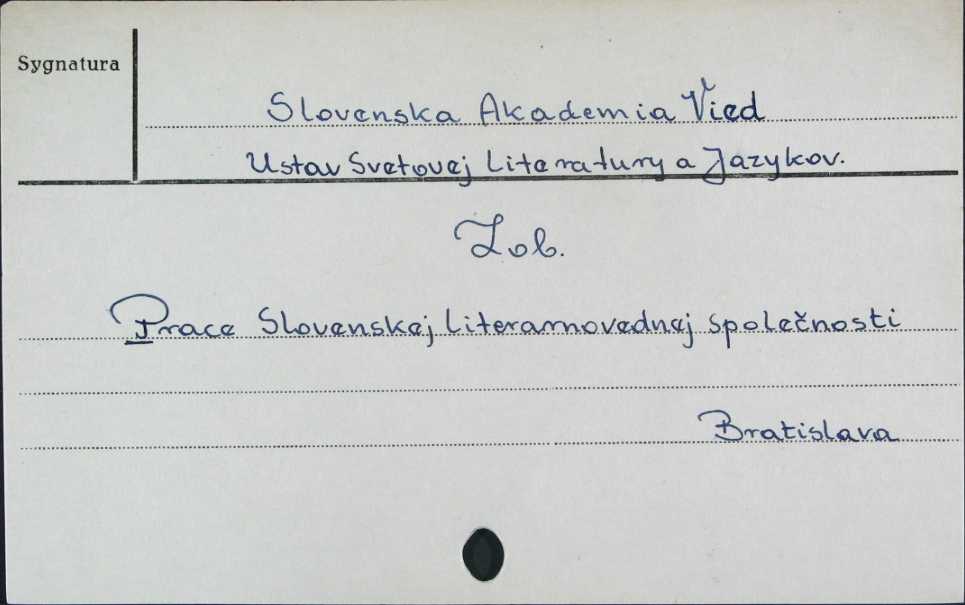 Sygnatura
Slovenska Akademia Vied
Ustav Svetovej Literatury a Jazykov.
Zob.
Prace Slovenskej Literarnovednej společnosti
Bratislava